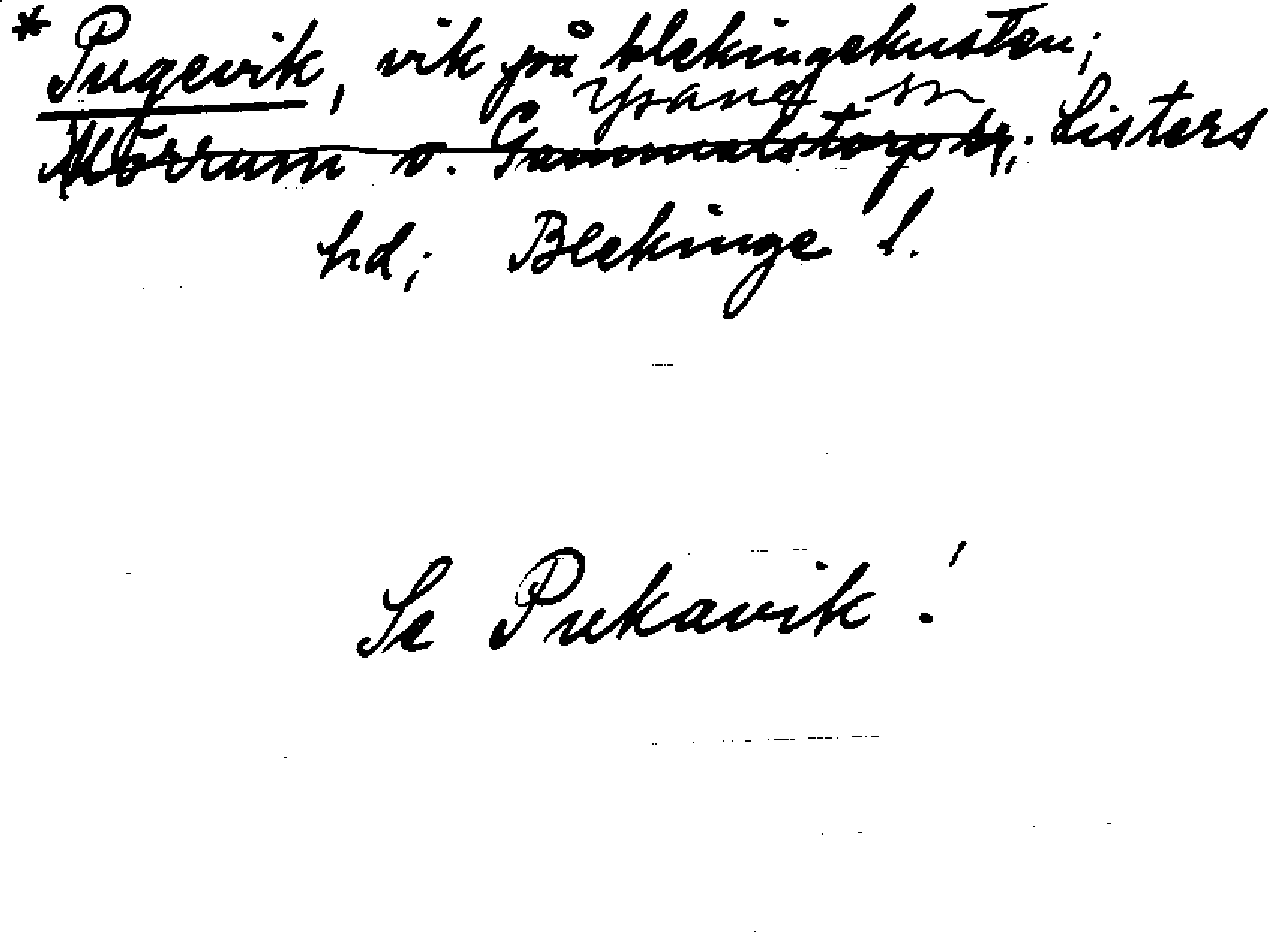 * Pugevik, vik på blekingekusten;
Ysane sn
Mörrum o. Gammalstorp sn; Listers
hd; Blekinge l.
Se Pukavik!